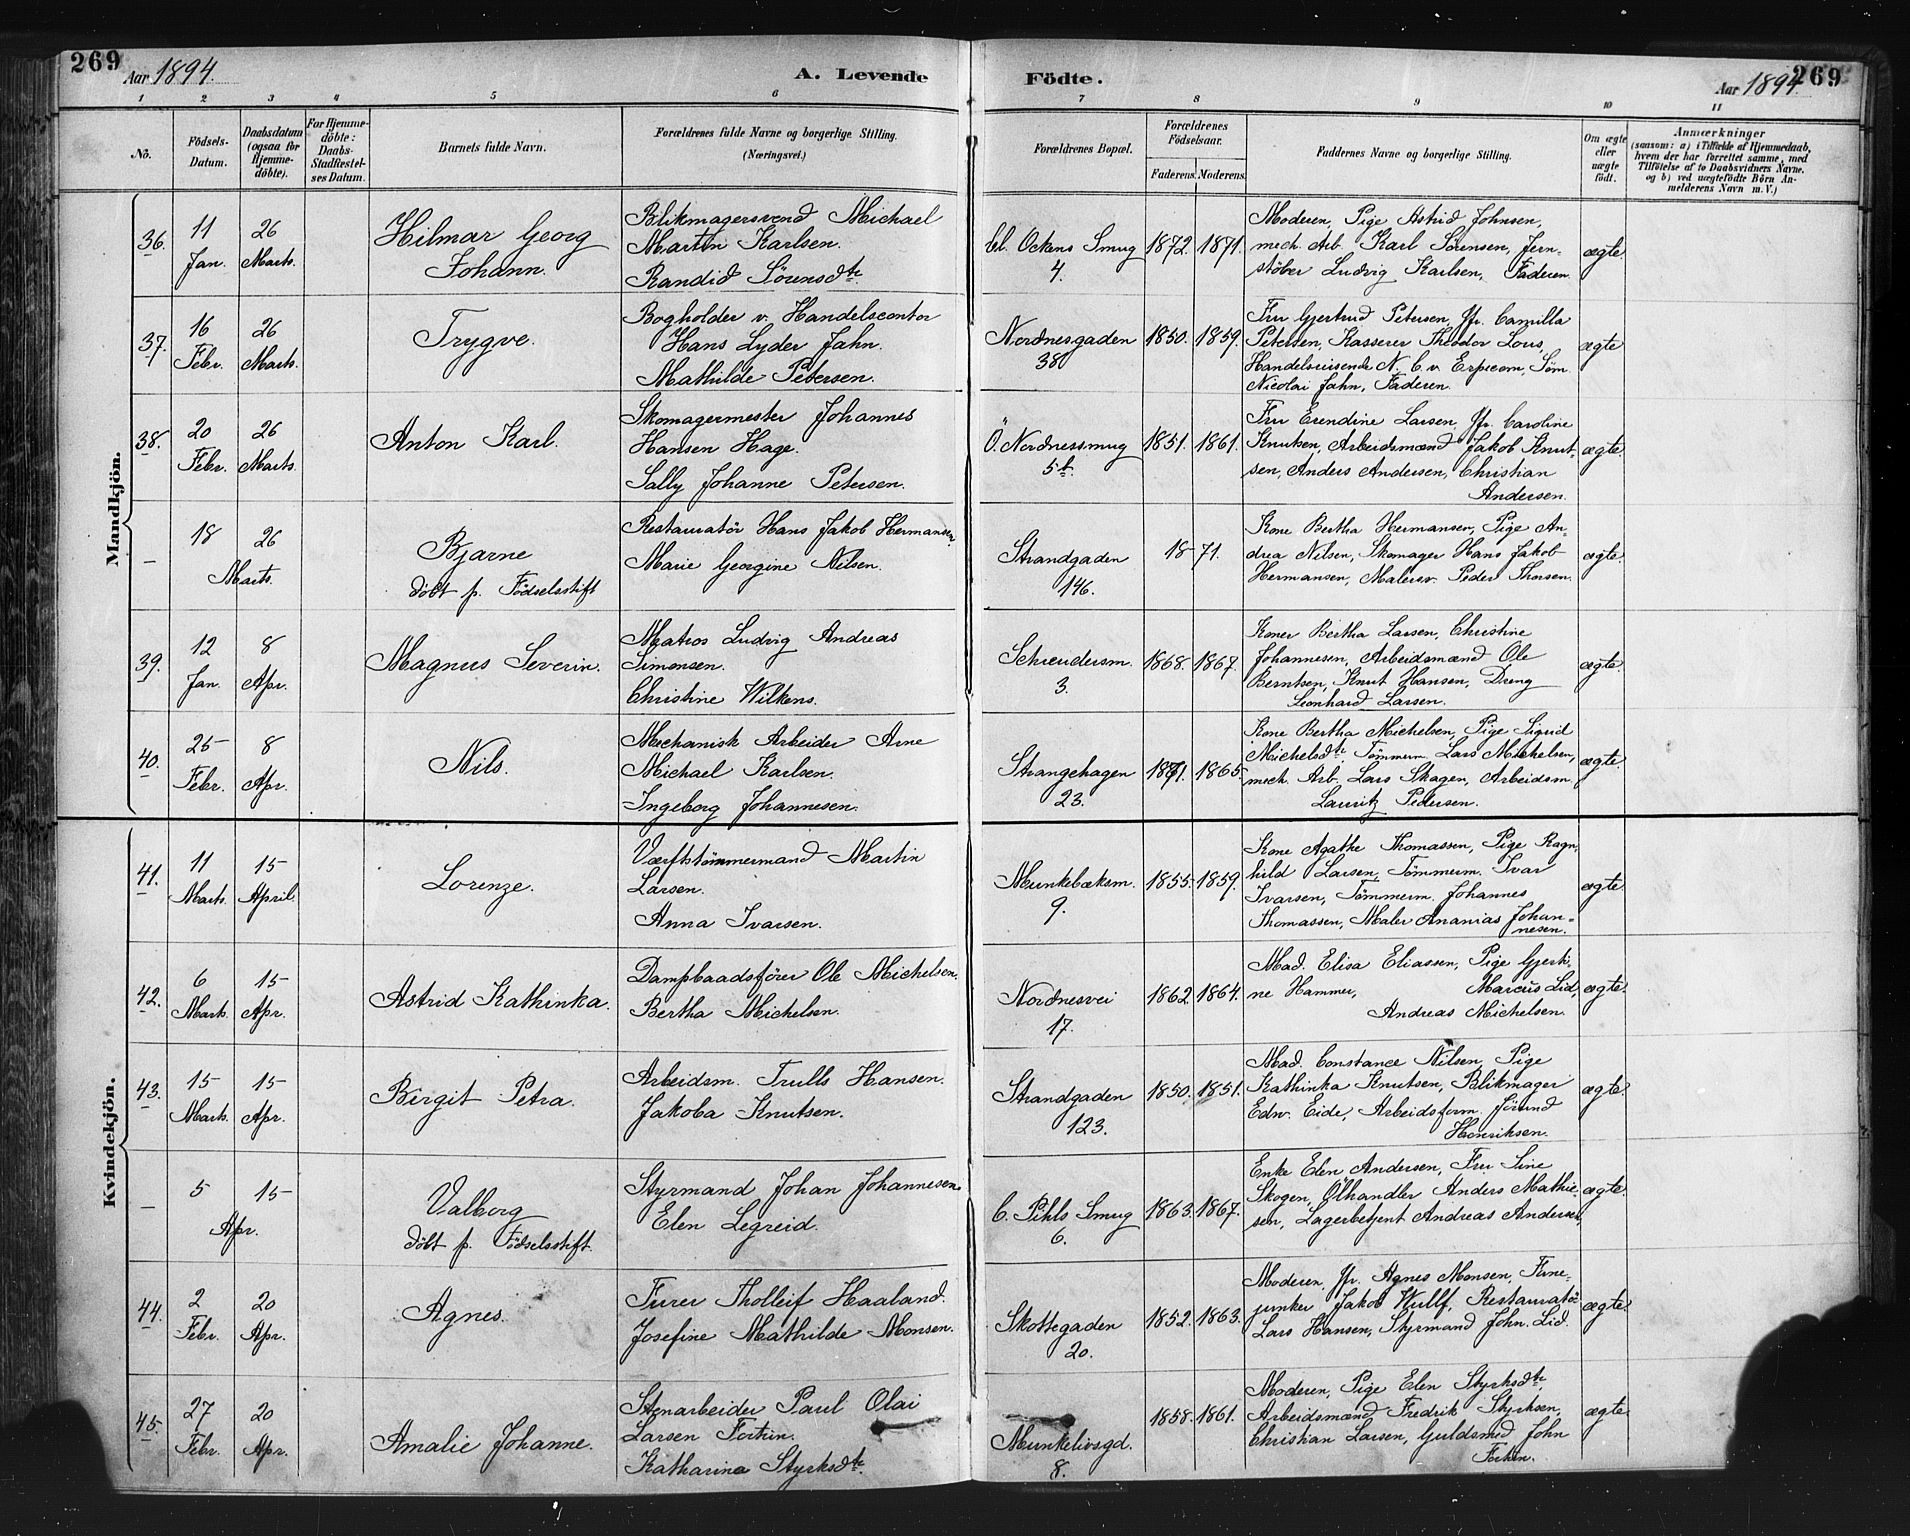 269
Aar 1894.
A. Levende Födte.
Aar 1894.
269
1 2 3 4 5 6 7 8 9 10 11
No.
Födsels-
Datum.
Daabsdatum
(ogsaa for
Hjemme-
döbte).
For Hjemme-
döbte:
Daabs-
Stadfæstel-
ses Datum.
Barnets fulde Navn.
Forældrenes fulde Navne og borgerlige Stilling.
(Næringsvei.)
Forældrenes Bopæl.
Forældrenes
Födselsaar.
Faderens. Moderens.
Faddernes Navne og borgerlige Stilling.
Om ægte
eller
uægte
födt.
Anmærkninger
(saasom: a) i Tilfælde af Hjemmedaab,
hvem der har forrettet samme, med
Tilföielse af to Daabsvidners Navne,
og b) ved uægtefödte Börn An-
melderens Navn m. V.)
Mandkjön.
36.
11
Jan.
26
Marts.
Hilmar Georg
Johann.
Blikmagersvend Michael
Martin Karlsen.
Randid Sørensdtr.
Cl. Ockens Smug
4.
1872. 1871.
Moderen, Pige Astrid Johnsen,
mech. Arb. Karl Sørensen, Jern-
støber Ludvig Karlsen, Faderen.
ægte.
37.
16
Febr.
26
Marts.
Trygve.
Bogholder v. Handelscontor
Hans Lyder Jahn.
Mathilde Petersen.
Nordnesgaden
38
1850. 1859.
Fru Gjertrud Petersen, Jfr. Camilla
Petersen, Kasserer Theodor Lous,
Handelsreisende N. C. v. Erpecom, Søm.
Nicolai Jahn, Faderen.
ægte
38.
20
Febr.
26
Marts.
Anton Karl.
Skomagermester Johannes
Hansen Hage.
Sally Johanne Petersen.
Ö. Nordnessmug
5b.
1851. 1861.
Fru Erendine Larsen, Jfr. Caroline
Knutsen, Arbeidsmænd Jakob Knut-
sen, Anders Andersen, Christian
Andersen.
ægte.
—
18 26
Marts.
Bjarne
döbt p. Födselsstift
Restauratör Hans Jakob Hermansen
Marie Georgine Nilsen.
Strandgaden
146.
18 71.
Kone Bertha Hermansen, Pige An-
drea Nilsen, Skomager Hans Jakob
Hermansen, Malersv. Peder Thorsen.
ægte.
39.
12
Jan.
8
Apr.
Magnus Severin.
Matros Ludvig Andreas
Simonsen.
Christine Wilkens.
Schreudersm.
3.
1868. 1867.
Koner Bertha Larsen, Christine
Johannesen, Arbeidsmænd Ole
Berntsen, Knut Hansen, Dreng
Leonhard Larsen.
ægte.
40.
25
Febr.
8
Apr.
Nils.
Mechanisk Arbeider Arne
Michael Karlsen.
Ingeborg Johannesen.
Strangehagen
23.
1871. 1865.
Kone Bertha Michelsen, Pige Sigrid
Michelsdtr. Tömmerm. Lars Michelsen,
mech. Arb. Lars Skagen, Arbeidsm.
Lauritz Pedersen.
ægte.
Kvindekjön.
41.
11
Marts.
15
April.
Lorenze.
Værftstömmermand Martin
Larsen.
Anna Ivarsen.
Munkebæksm.
9.
1855. 1859.
Kone Agathe Thomassen, Pige Ragn-
hild Larsen, Tömmerm. Ivar
Ivarsen, Tömmerm. Johannes
Thomassen, Maler Ananias Johan-
nesen.
ægte.
42.
6
Marts.
15
Apr.
Astrid Kathinka.
Dampbaadsfører Ole Michelsen.
Bertha Michelsen.
Nordnesvei
17.
1862 1864.
Mad. Elisa Eliassen, Pige Gjerti-
ne Hammer, Marcus Lid,
Andreas Michelsen.
ægte.
43.
15
Marts.
15
Apr.
Birgit Petra.
Arbeidsm. Trulls Hansen.
Jakoba Knutsen.
Strandgaden
123.
1850. 1851.
Mad. Constance Nilsen, Pige
Kathinka Knutsen, Blikmager
Edw. Eide, Arbeidsform. Jörund
Henriksen.
ægte.
—
5 15
Apr.
Valborg
döbt p. Födselsstift.
Styrmand Johan Johannesen
Elen Legreid.
C. Pihls Smug
6.
1863. 1867.
Enke Elen Andersen, Fru Sine
Skogen, Ölhandler Anders Mathie-
sen, Lagerbetjent Andreas Andersen.
ægte.
44.
2
Febr.
20
Apr.
Agnes.
Furer Tholleif Haaland.
Josefine Mathilde Monsen.
Skottegaden
20.
1852. 1863.
Moderen, Jfr. Agnes Monsen, Fane-
junker Jakob Wullf, Restauratör
Lars Hansen, Styrmand John. Lid.
ægte.
45.
27
Febr.
20
Apr.
Amalie Johanne.
Stenarbeider Paul Olai
Larsen Fortun.
Katharina Styrksdtr.
Munkelivsgd.
8.
1858. 1861.
Moderen, Pige Elen Styrksdtr,
Arbeidsmænd Fredrik Styrksen,
Christian Larsen, Guldsmed John
Fortun.
ægte.